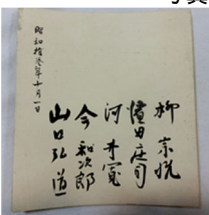 柳 宗悦
濱田庄司
河井寛
今 和次郎
山口弘道
昭和拾年十月一日